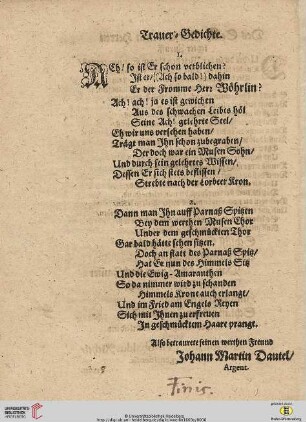 Trauer-Gedichte.
1.
ACh! so ist Er schon verblichen?
Ist er/ (Ach so bald!) dahin
Er der Fromme Herr Wöhrlin?
Ach! ach! ja es ist gewichen
Aus des schwachen Leibes höl
Seine Ach! gelehrte Seel/
Eh wir uns versehen haben/
Trägt man Ihn schon zubegraben/
Der doch war ein Musen Sohn/
Und durch sein gelehrtes Wissen/
Dessen Er sich stets beflissen/
Strebte nach der Lorbeer Kron.
2.
Dann man Ihn auff Parnaß Spitzen
Bey dem werthen Musen Chor
Under dem geschmückten Thor
Gar bald hätte sehen sitzen.
Doch an statt des Parnaß Spitz/
Hat Er nun des Himmels Sitz
Und die Ewig-Amaranthen
So da nimmer wird zu schanden
Himmels Krone auch erlangt/
Und im Fried am Engels Reyen
Sich mit Ihnen zu erfreuen
In geschmücktem Haare prangt.
Also betraurete seinen werthen Freund
Johann Martin Dautel/
Argent.
Finis.